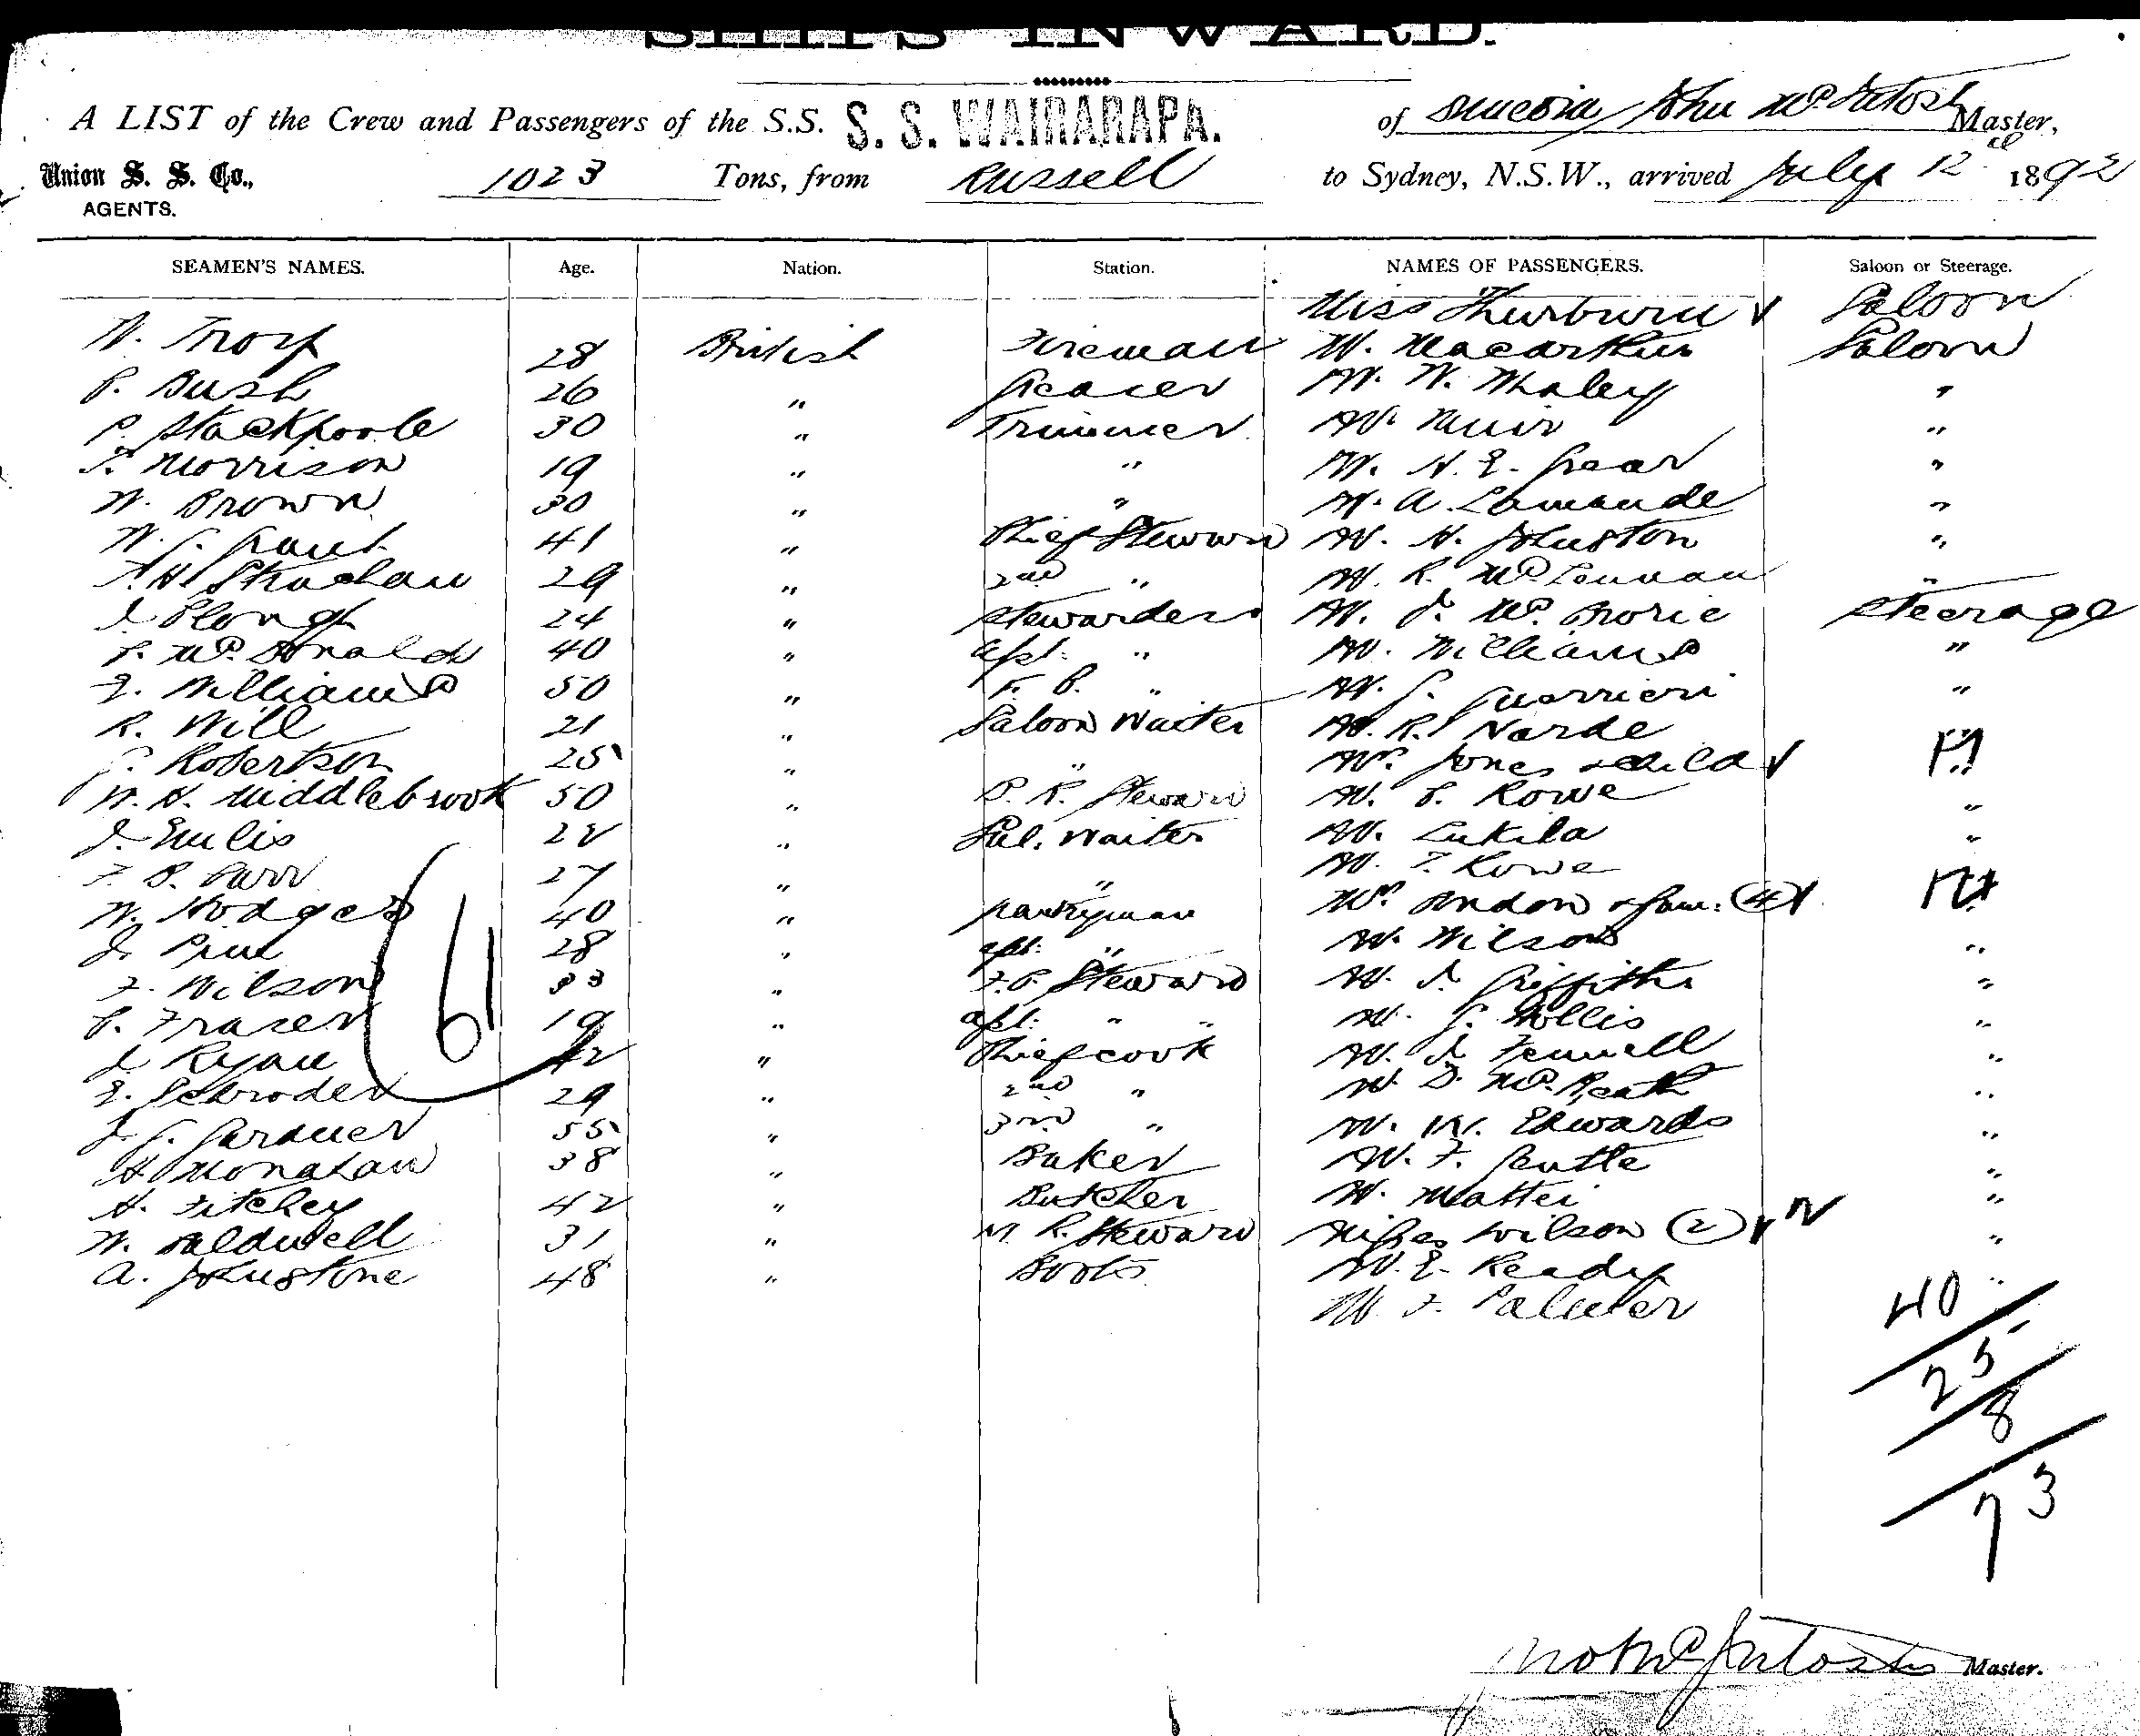 SHIPS INWARD.
A LIST of the Crew and Passengers of the S.S. S. S. WAIRARAPA. of John McIntosh Master,
Union S. S. Co., 1023 Tons, from Russell to Sydney, N.S.W., arrived July 12 1892
AGENTS.
SEAMEN'S NAMES. Age. Nation. Station. NAMES OF PASSENGERS. Saloon or Steerage.
Miss Thurburn Saloon
W. 28 British Fireman Mr. Macarthur Saloon
P. Bush 26 " Greaser Mr. W. Whaley "
P. Stackpoole 30 " Trimmer Mr. Muir "
T. Morrison 19 " " Mr. H. E. Gear "
W. Brown 30 " " Mr. A. Lamande "
W. G. Gaunt 41 " Chief Steward Mr. H. Johnston "
A. H. Strachan 29 " 2nd " Mr. R. McLennan "
J. Plough 24 " Stewardess Mr. J. McBorie Steerage
P. McDonald 40 " asst: " Mr. Williams "
E. Williams 50 " F. C. " Mr. G. Guerrieri "
R. Will 21 " Saloon Waiter Mr. R. Narde
G. Robertson 25 " " Mrs. Jones & child "
W. H. Middlebrook 50 " B. R. Steward Mr. P. Rowe "
J. Emlis 22 " Sal. Waiter Mr. Lukila "
F. B. Parr 27 " " Mr. T. Rowe
W. Hodges 40 " pantryman Mrs. Andon & fam: (4)
J. Pine 28 " asst: " Mr. Wilson "
F. Wilson 33 " F.C. Steward Mr. J. Griffiths "
P. Fraser 19 " asst: " " Mr. G. Hollis "
J. Ryan 42 " Chief cook Mr. J. Fennell "
E. Schroder 29 " 2nd " Mr. D. "
J. G. Gardner 55 " 3rd " Mr. W. Edwards "
H. Monahan 38 " Baker Mr. F. "
H. Fitchey 42 " Butcher Mr. Mattei "
W. Caldwell 31 " M. R. Steward Misses Wilson (2) "
A. Johnstone 48 " Boots Mr. E. Ready "
Mr. F. Palmer
61
40
25
8
73
Jno McIntosh Master.